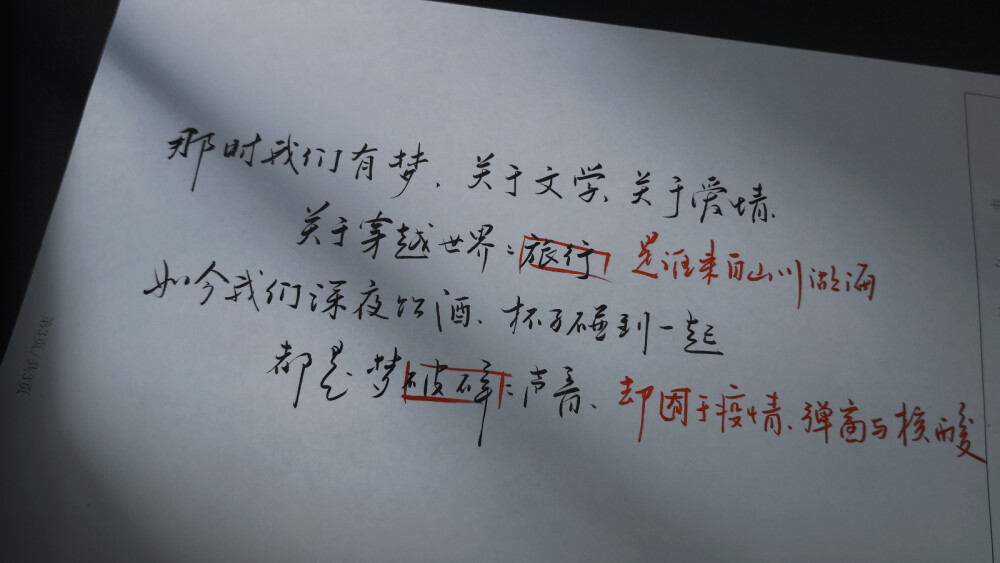 那时我们有梦，关于文学、关于爱情、
关于穿越世界的旅行 是谁来自山川湖海
如今我们深夜饮酒、杯子碰到一起
都是梦破碎的声音、却囿于疫情、弹窗与核酸
第3页/共3页